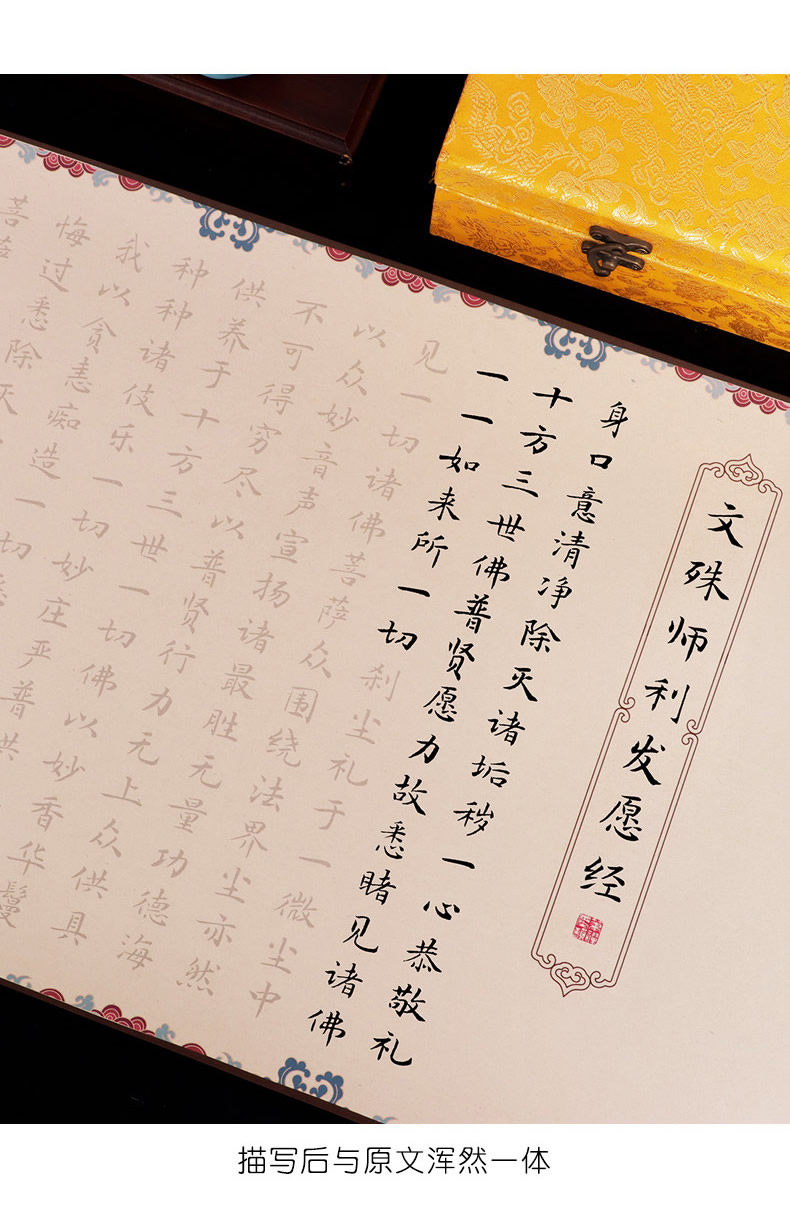 文殊师利发愿经
身口意清净除灭诸垢秽一心恭敬礼
十方三世佛普贤愿力故悉睹见诸佛
一一如来所一切刹尘礼于一微尘中
见一切诸佛菩萨众围绕法界尘亦然
以众妙音声宣扬诸最胜无量功德海
不可得穷尽以普贤行力无上众供具
供养于十方三世一切佛以妙香华鬘
种种诸伎乐一切妙庄严普供
我以贪恚痴造一切
悔过悉除灭
菩萨
描写后与原文浑然一体